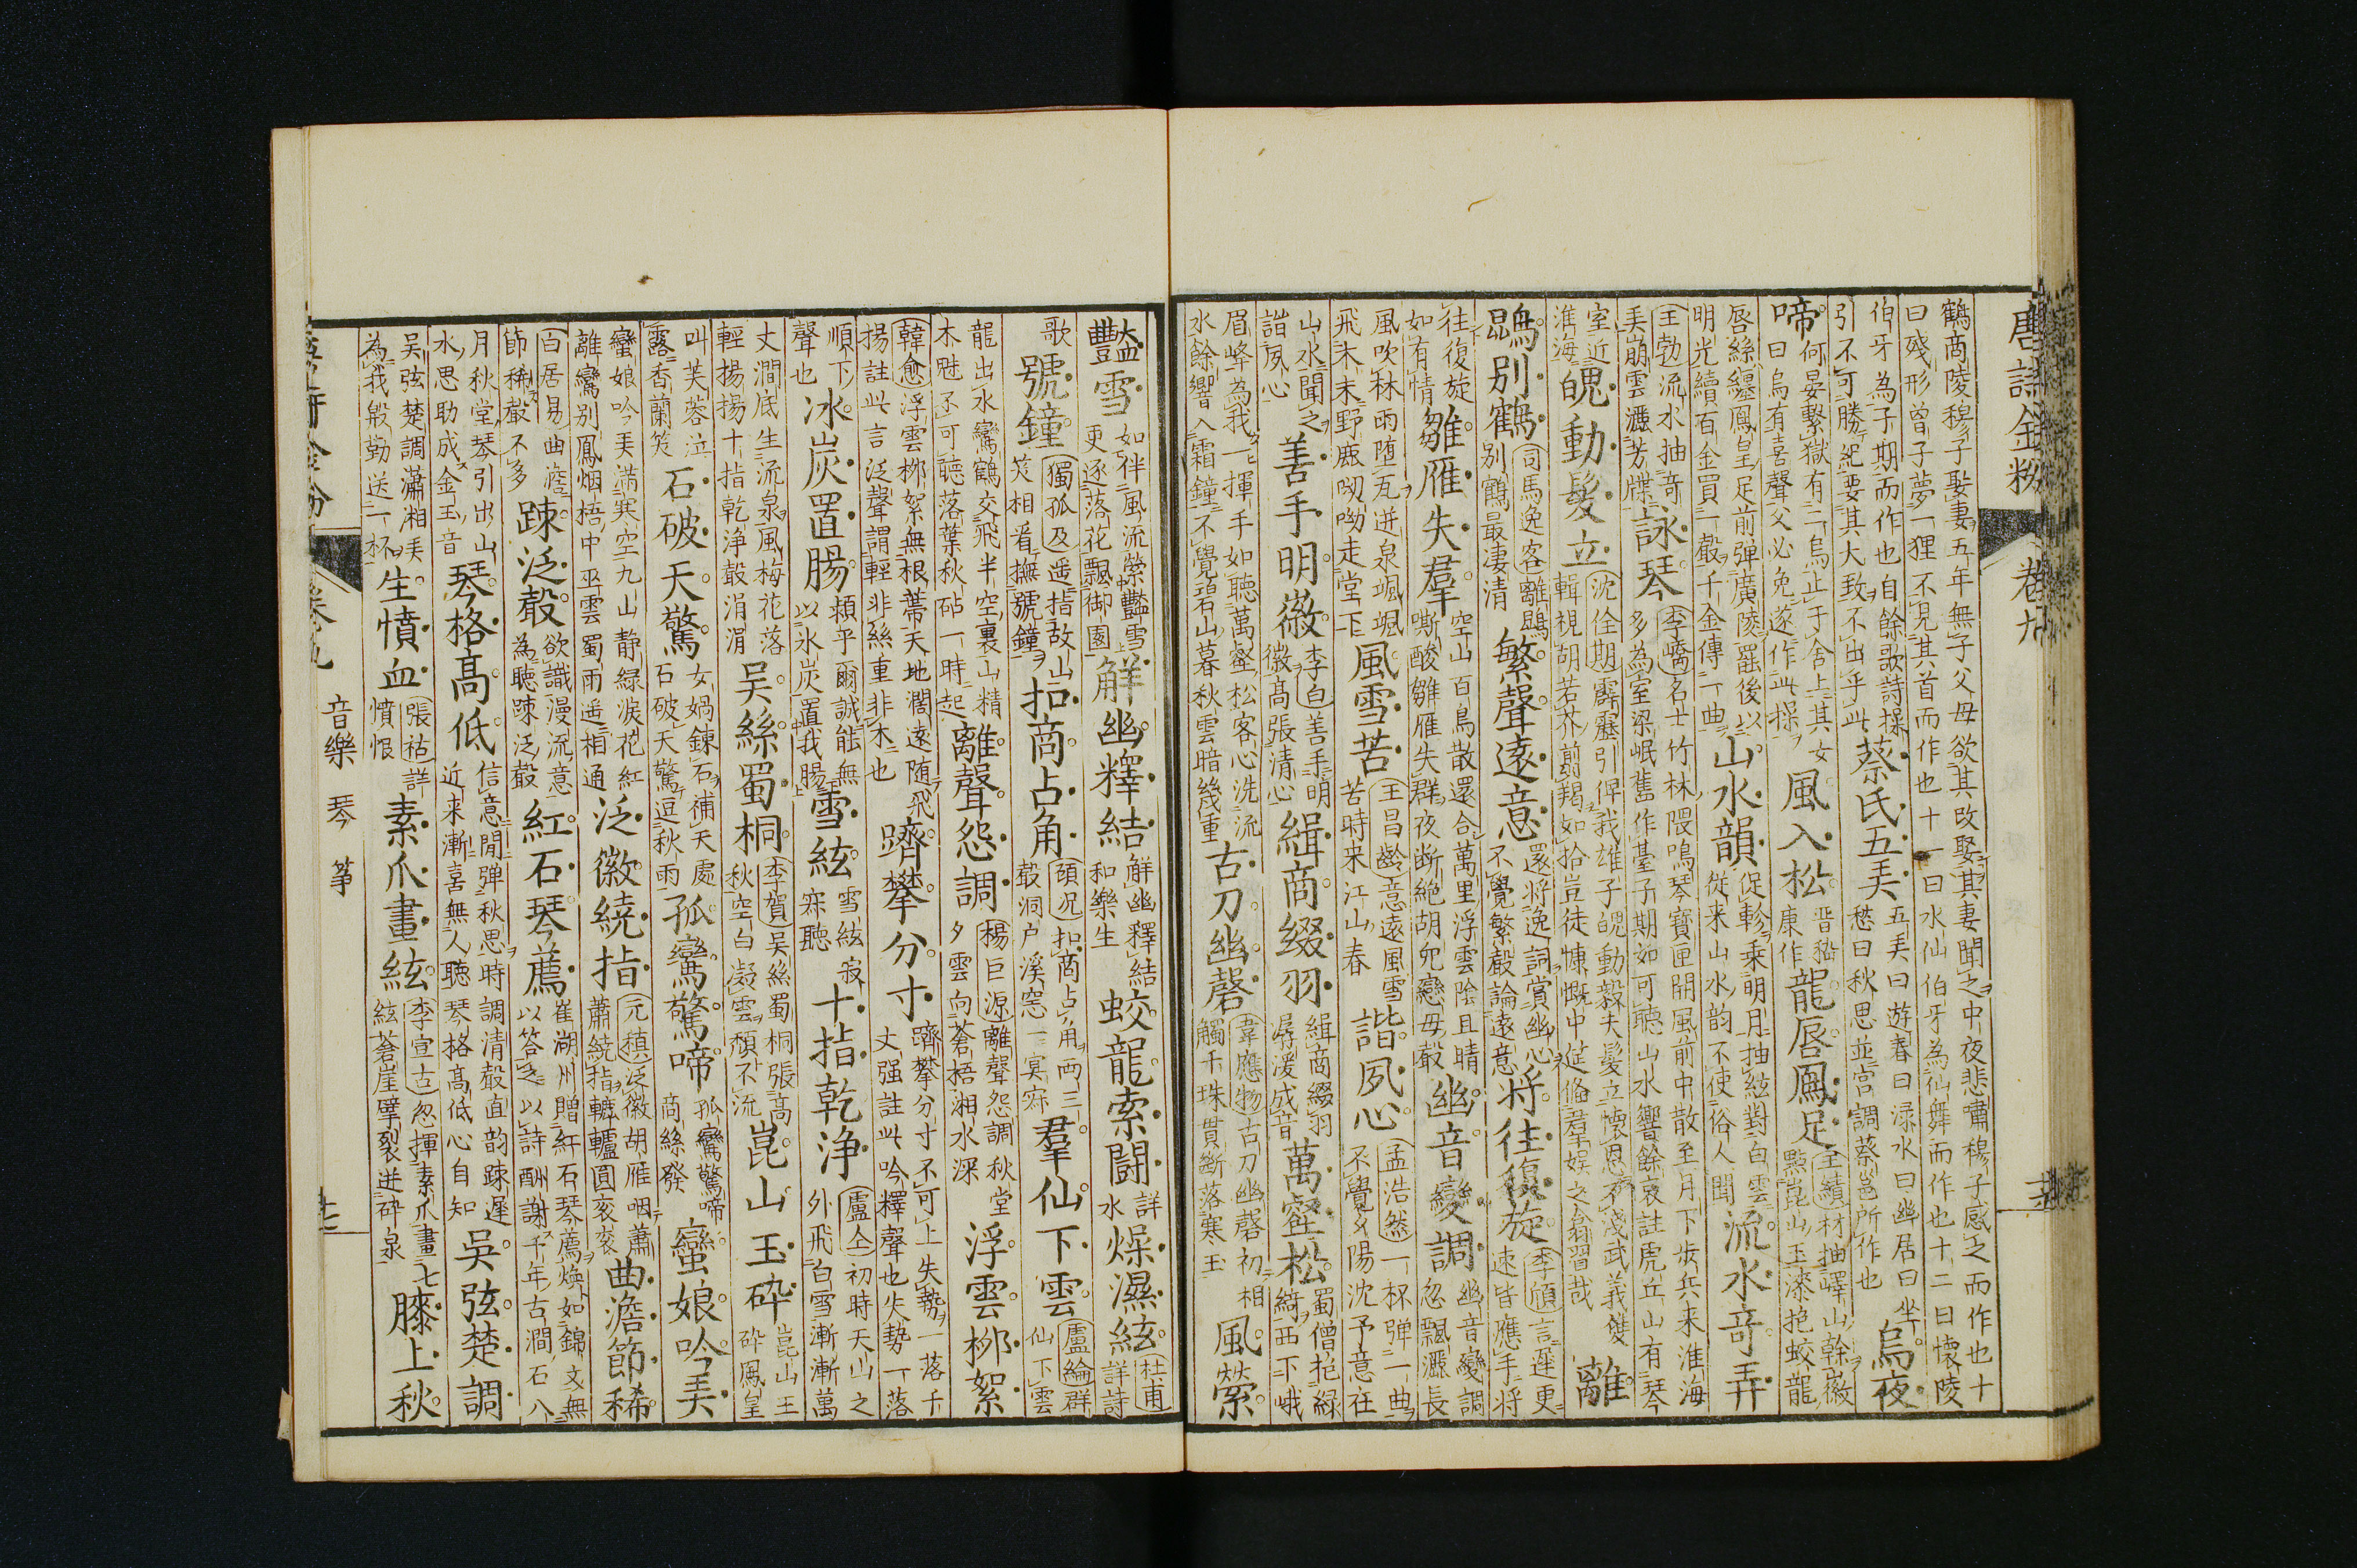 唐詩金粉 卷九
鶴商陵穆子娶妻五年無子父母欲其改娶其妻聞之中夜悲嘯穆子感之而作也十
曰殘形曾子夢一狸不見其首而作也十一曰水仙伯牙為仙舞而作也十二曰懷陵
伯牙為子期而作也自餘歌詩操
引不可勝紀要其大致不出乎此
蔡氏五弄
五弄曰遊春曰渌水曰幽居曰坐
愁曰秋思並宮調蔡邕所作也
烏夜
啼
何晏繫獄有二烏止于舍上其女
曰烏有喜聲父必免遂作此操
風入松
晋嵇
康作
龍唇鳳足
王績材抽嶧山幹徽
點崑山玉漆抱蛟龍
唇絲纒鳳皇足前弾廣陵罷後以
明光續百金買一聲千金傳一曲
山水韻
促軫乗明月抽絃對白雲
從来山水韵不使俗人聞
流水奇弄
王勃流水抽奇
弄崩雲灑芳牒
詠琴
李嶠名士竹林隈鳴琴寶匣開風前中散至月下步兵来淮海
多為室梁岷舊作臺子期如可聽山水響餘哀註虎丘山有琴
室近
淮海
魄動髮立
沈佺期霹靂引俾我雄子魄動毅夫髮立懷恩不淺武義雙
輯視胡若芥剪羯如拾豈徒慷慨中筵俻羣娱之翕習哉
離
鵾別鶴
司馬逸客離鵾
別鶴最凄清
繁聲遠意
還將逸詞賞幽心
不覺繁聲論遠意
将往復旋
李頎言遲更
速皆應手将
往復旋
如有情
雛雁失羣
空山百鳥散還合萬里浮雲陰且晴
嘶酸雛雁失群夜断絶胡兒戀母聲
幽音變調
幽音變調
忽飄灑長
風吹林雨堕瓦迸泉颯颯
飛木末野鹿呦呦走堂下
風雪苦
王昌齡意遠風雪
苦時来江山春
諧夙心
孟浩然一杯弾一曲
不覺夕陽沈予意在
山水聞之
諧夙心
善手明徽
李白善手明
徽髙張清心
緝商綴羽
緝商綴羽
潺湲成音
萬壑松
蜀僧抱緑
綺西下峨
眉峰為我一揮手如聽萬壑松客心洗流
水餘響入霜鐘不覺碧山暮秋雲暗幾重
古刀幽磬
韋應物古刀幽磬初相
觸千珠貫斷落寒玉
風縈
豔雪
如伴風流縈豔雪
更逐落花飄御園
解幽釋結
解幽釋結
和樂生
蛟龍索鬪
詳
水
燥濕絃
杜甫
詳詩
歌
號鐘
獨孤及遥指故山
笑相看撫號鐘
扣商占角
顧况扣商占角两三
聲洞户溪窓一冥寐
羣仙下雲
盧綸群
仙下雲
龍出水鸞鶴交飛半空裏山精
木魅不可聽落葉秋砧一時起
離聲怨調
楊巨源離聲怨調秋堂
夕雲向蒼梧湘水深
浮雲栁絮
韓愈浮雲栁絮無根蔕天地濶遠随飛
揚註此言泛聲謂輕非絲重非木也
躋攀分寸
躋攀分寸不可上失勢一落千
丈强註此吟釋聲也失勢一落
順下
聲也
冰炭置腸
頼乎爾誠能無
以氷炭置我腸
雪絃
雪絃寂
寐聽
十指乾浄
盧仝初時天山之
外飛白雪漸漸萬
丈澗底生流泉風梅花落
輕揚揚十指乾浄聲涓涓
吴絲蜀桐
李賀吴絲蜀桐張髙
秋空白凝雲頽不流
崑山玉碎
崑山玉
碎鳳皇
叫芙蓉泣
露香蘭笑
石破天驚
女媧鍊石補天處
石破天驚逗秋雨
孤鸞驚啼
孤鸞驚啼
商絲發
蠻娘吟弄
蠻娘吟弄滿寒空九山静緑淚花紅
離鸞別鳳烟梧中巫雲蜀雨遥相通
泛徽繞指
元稹泛徽胡雁咽蕭
蕭繞指轆轤圓衮衮
曲澹節稀
白居易曲澹
節稀聲不多
踈泛聲
欲識漫流意
為聽踈泛聲
紅石琴薦
崔湖州贈紅石琴薦煥如錦文無
以答之以詩酬謝千年古澗石八
月秋堂琴引出山
水思助成金玉音
琴格髙低
信意閒弾秋思時調清聲直韵踈遲
近来漸喜無人聽琴格髙低心自知
吴弦楚調
吴弦楚調瀟湘弄
為我殷勤送一杯
生憤血
張祜詳
憤恨
素爪畫絃
李宣古忽揮素爪畫七
絃蒼崖擘裂迸碎泉
膝上秋
卷九 音樂 琴 筝